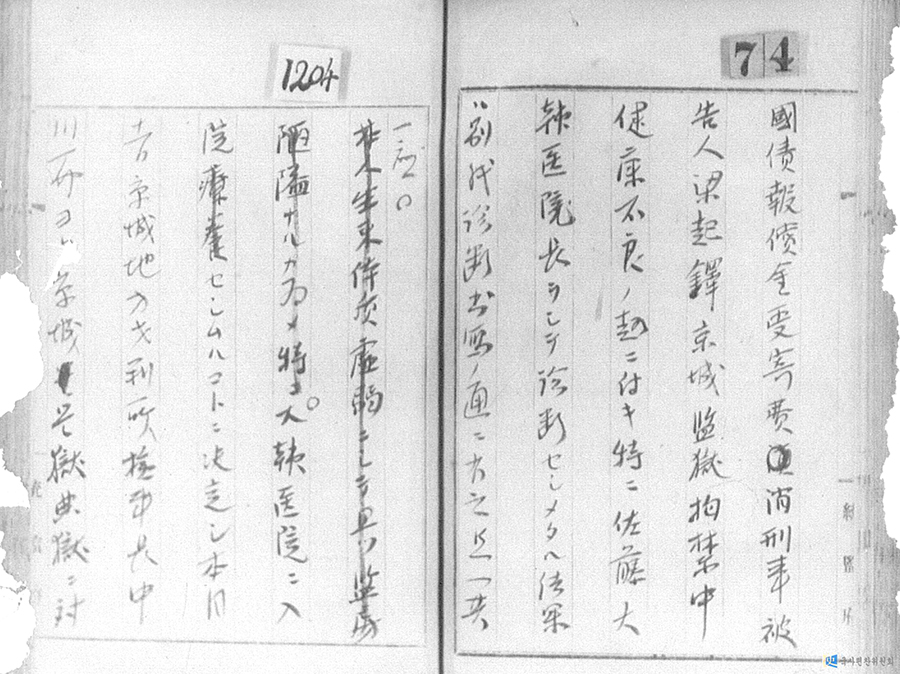 74
國債報償金受寄費消刑事被
告人梁起鐸京城監獄拘禁中
健康不良ノ趣ニ付キ特ニ佐藤大
韓医院長ヲシテ診断セシメタル結果
ハ別紙診断書写ノ通ニ有之
1204
ニシテ且ツ監房
陋隘ナルカ為メ特ニ大韓医院ニ入
院療養セシムルコトニ決定シ本日
京城地方裁判所検事長中
川一介ヨリ京城監獄典獄ニ対
국사편찬위원회